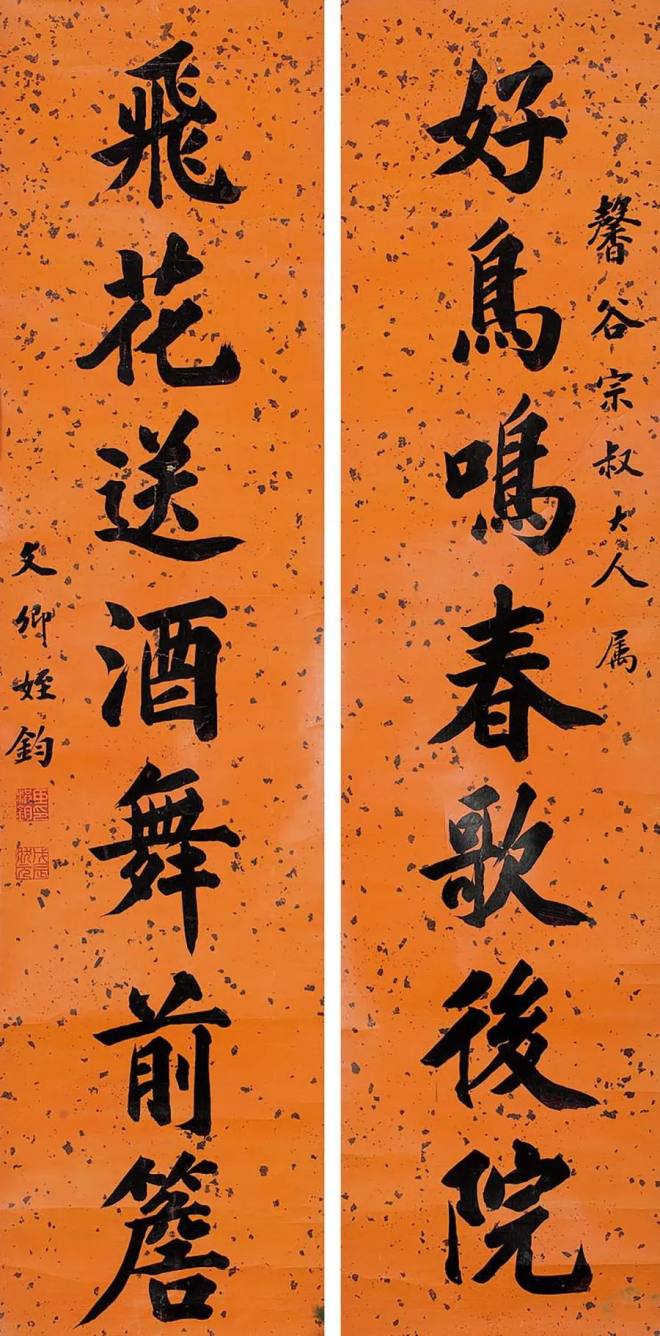 馨谷宗叔大人属
好鳥鳴春歌後院
飛花送酒舞前簷
文卿姪鈞
戊辰狀元